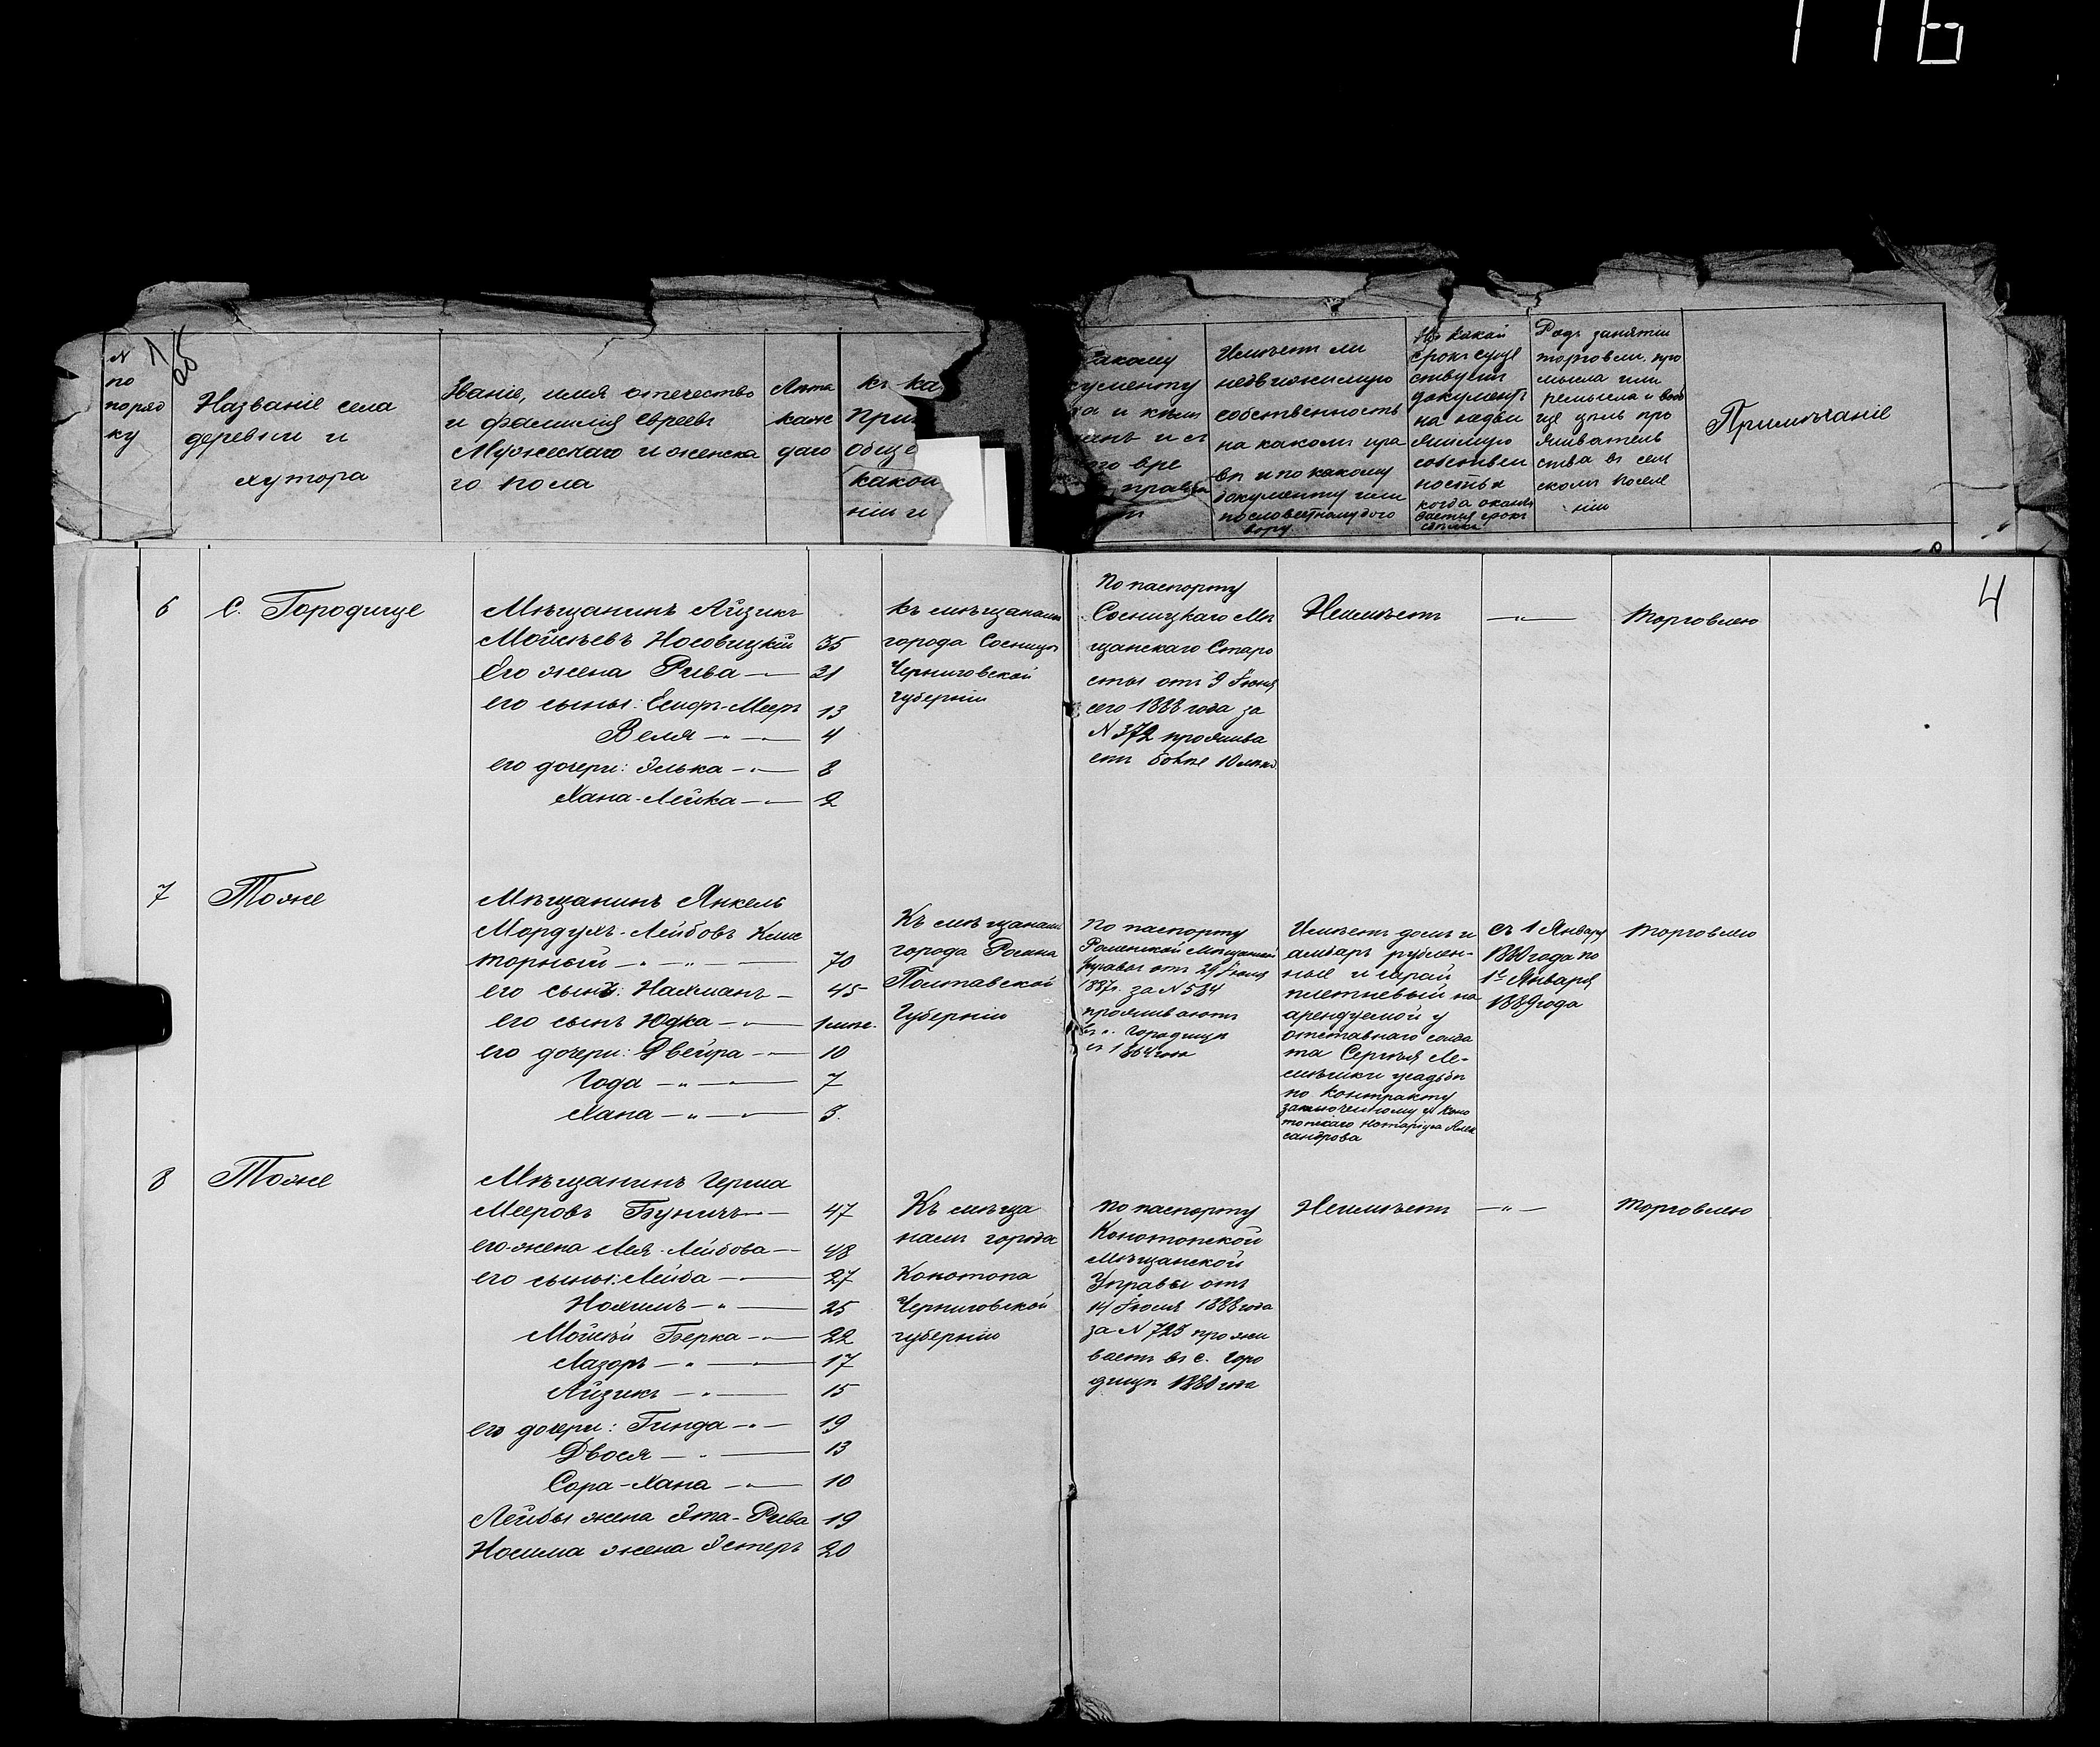 116
№
по
поряд
ку
Названіе села
деревни и
хутора
Званіе, имя отечество
и фамилія евреевъ
Мужескаго и женска
го пола
Лѣта
каж
даго
къ ка
При
обще
какой
ніи и
какому
кументу
вре
Имѣетъ ли
недвижимую
собственность
на какомъ пра
вѣ и по какому
документу или
по словестному дого
вору
На какой
срокъ суще
ствуетъ
документъ
на недви
жимую
собствен
ность и
когда оканчи
вается срокъ
Родъ занятій
торговли, про
мысла или
ремысла и вооб
ще цѣль про
живатель
ства въ сель
скомъ поселе
ніи
Примѣчаніе
4
6
С. Городище
Мѣщанинъ Айзикъ
Мойсѣевъ Носовицкій 35
Его жена Рива —„— 31
его сыны: Есифъ-Мееръ 13
Веля —„— 4
его дочери: Элька —„— 8
Хана-Лейка —„— 2
къ мѣщанамъ
города Сосницы
Черниговской
губерніи
По паспорту
Сосницкаго Мѣ
щанскаго Старо
сты отъ 9 Іюня
сего 1888 года за
№ 372 прожива
етъ болѣе 10 лѣтъ
Неимѣетъ
—„—
Торговлею
7
Тоже
Мѣщанинъ Янкель
Мордухъ-Лейбовъ Клис
торный —„—„— 70
его сынъ: Нахманъ — 45
его сынъ Юдка —„— 1 мѣс.
его дочери: Двейра —„— 10
Года —„— 7
Хана —„— 3
Къ мѣщанамъ
города Ромна
Полтавской
Губерніи
По паспорту
Роменской Мѣщанской
Управы отъ 29 Іюля
1887г. за № 584
проживаютъ
въ с. Городищѣ
съ 1864 года
Имѣетъ домъ и
амбаръ рублен-
ные и сарай
плетневый на
арендуемой у
отставнаго солда
та Сергѣя Ле-
мѣшки усадьбѣ
по контракту
заключенному у Коно
топскаго Нотаріуса Алек
сандрова
съ 1 Января
1880 года по
1е Января
1889 года
Торговлею
8
Тоже
Мѣщанинъ Герша
Мееровъ Буничъ —„— 47
его жена Лея-Лейбова — 48
его сыны: Лейба —„— 27
Нохимъ —„— 25
Мойсѣй Берка —„— 22
Лазоръ —„— 17
Айзикъ —„— 15
его дочери: Гинда —„— 19
Двося —„— 13
Сора-Хана —„— 10
Лейбы жена Эта-Рива 19
Носима жена Эстеръ 20
Къ мѣща
намъ города
Конотопа
Черниговской
губерніи
По паспорту
Конотопской
Мѣщанской
Управы отъ
14 Іюля 1888 года
за № 723 прожи
ваетъ въ с. Горо
дищѣ 1880 года
Неимѣетъ
—„—
Торговлею